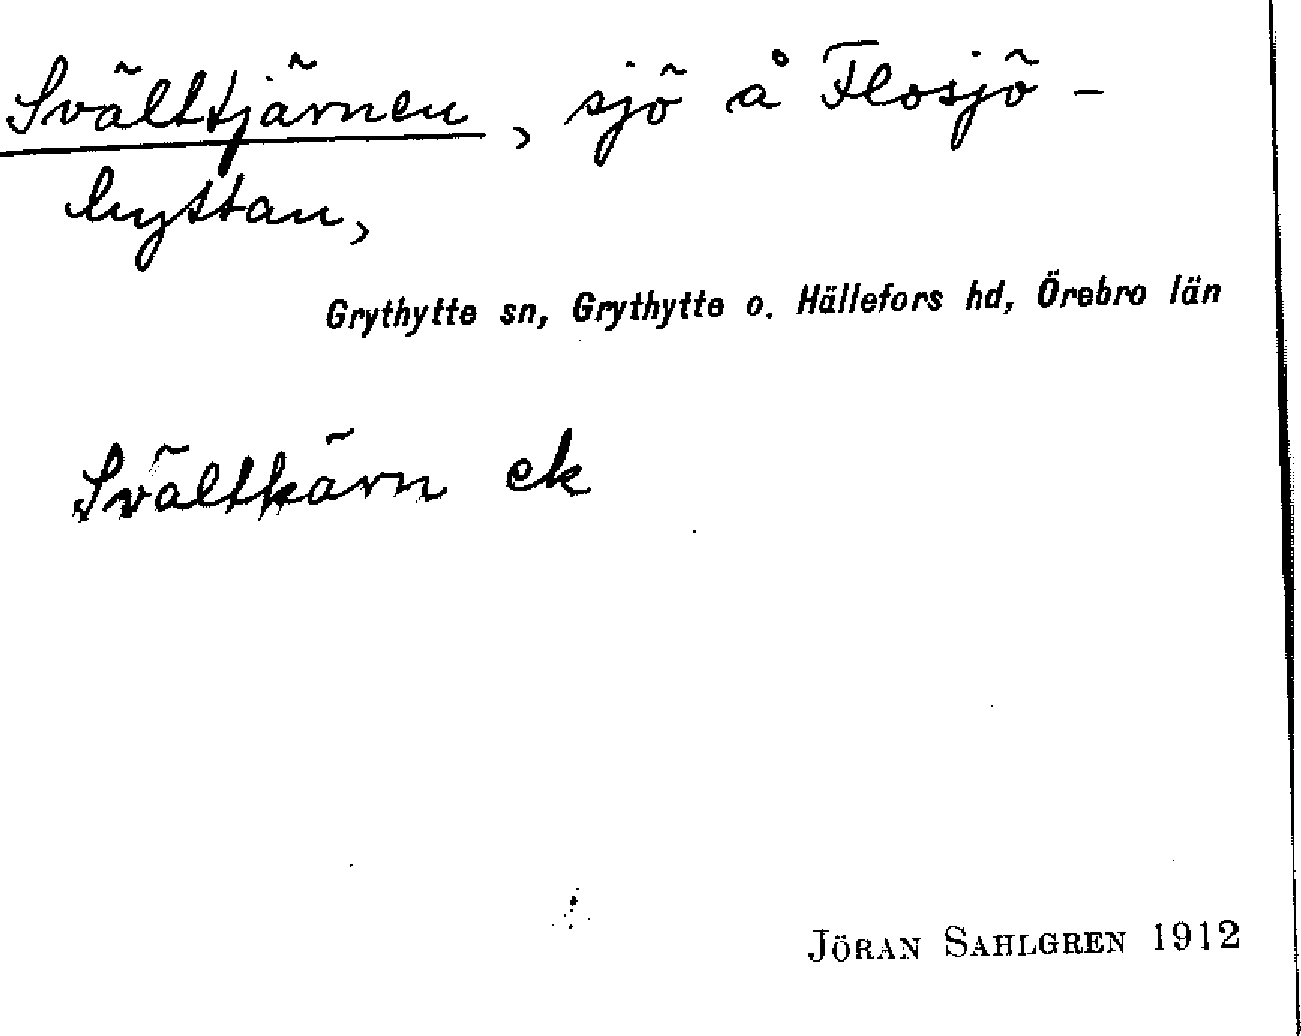 Svälttjärnen, sjö å Flosjö-
hyttan,
Grythytte sn, Grythytte o. Hällefors hd, Örebro län
Svältkärn ek
JÖRAN SAHLGREN 1912